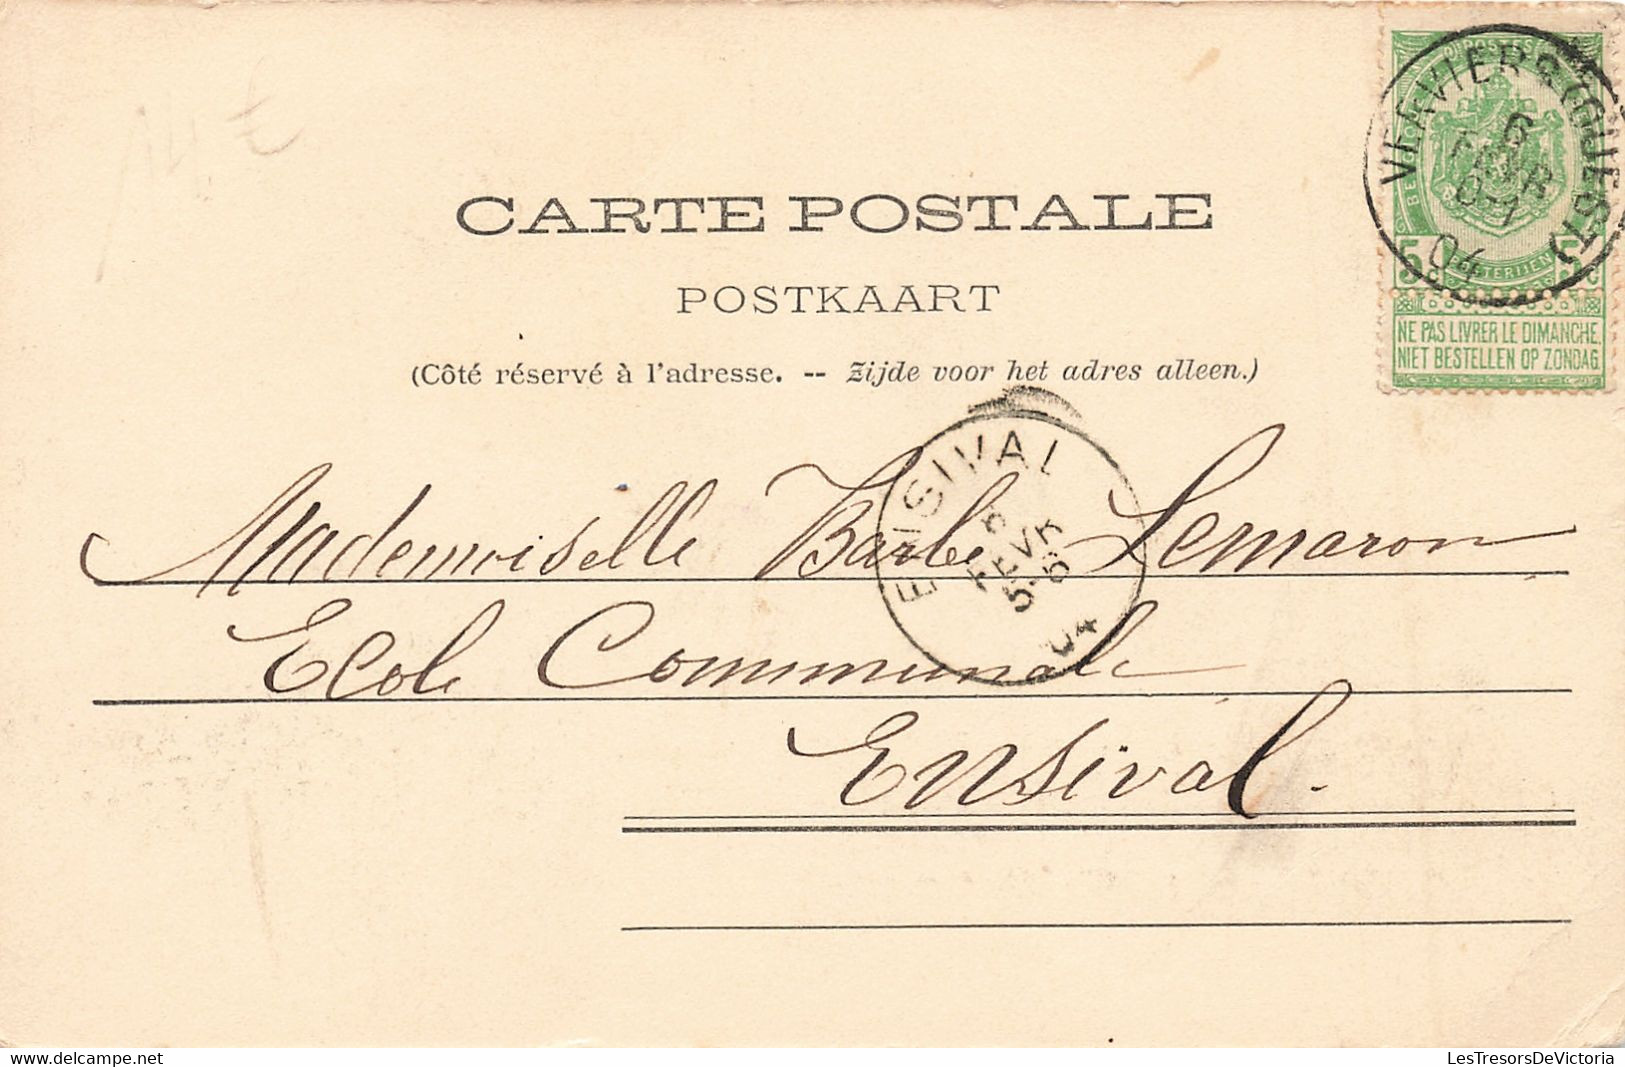 14 £
POSTES
VERVIERS (OUEST)
6
FEVR
04
5c 5c
NE PAS LIVRER LE DIMANCHE
NIET BESTELLEN OP ZONDAG
CARTE POSTALE
POSTKAART
(Côté réservé à l'adresse. -- Zijde voor het adres alleen.)
ENSIVAL
6
FEVR
5-6
04
Mademoiselle Barbe Lemaron
Ecole Communale
Ensival.
www.delcampe.net
LesTresorsDeVictoria